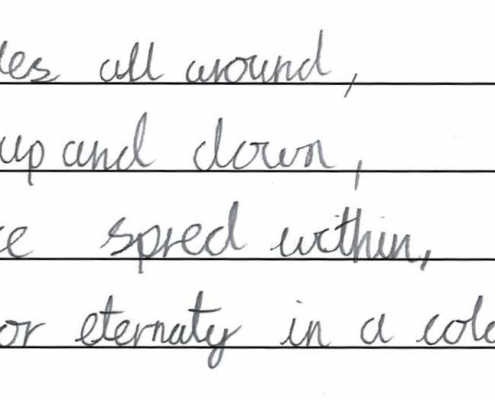 les all around,
up and down,
ce spred within,
or eternaty in a cold